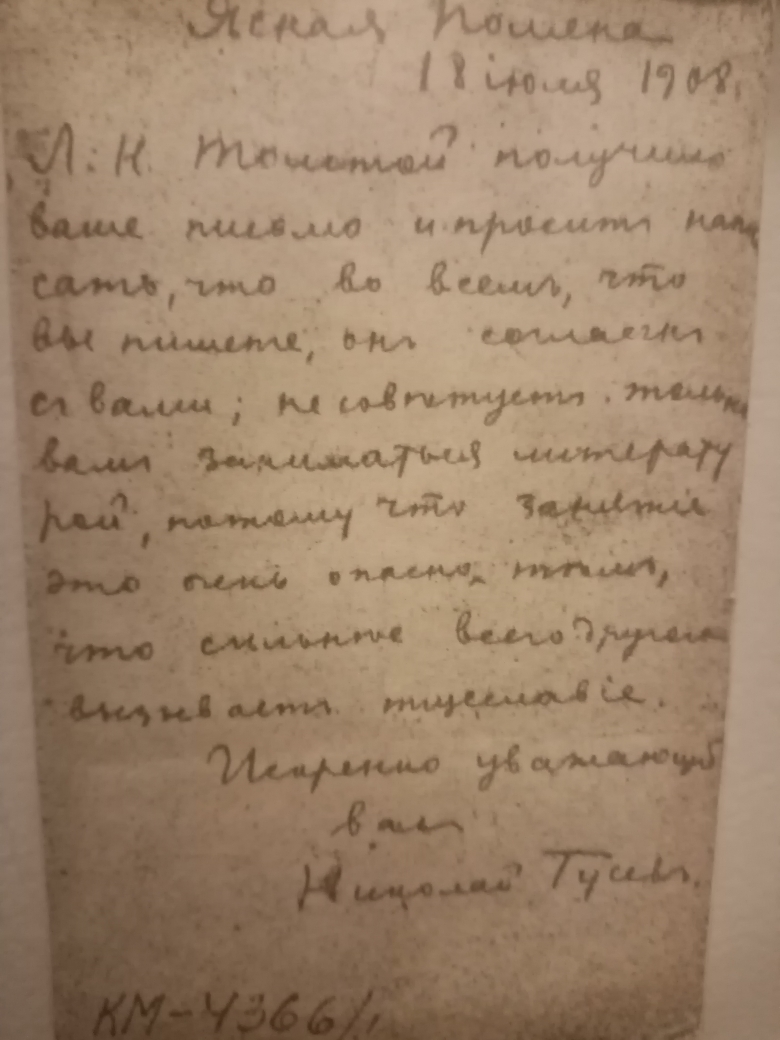 Ясная Поляна
18 іюля 1908.
Л. Н. Толстой получилъ
ваше письмо и проситъ напи
сать, что во всемъ, что
вы пишете, онъ согласенъ
съ вами; не совѣтуетъ только
вамъ заниматься литерату
рой, потому что занятіе
это очень опасно тѣмъ,
что сильнѣе всего другого
вызываетъ тщеславіе.
Искренно уважающій
васъ
Николай Гусевъ.
КМ-4366/1